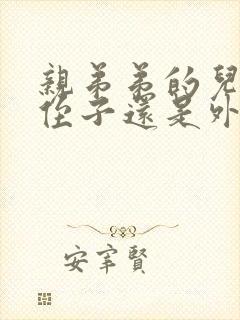 親弟弟的兒
侄子還是外
安宰賢